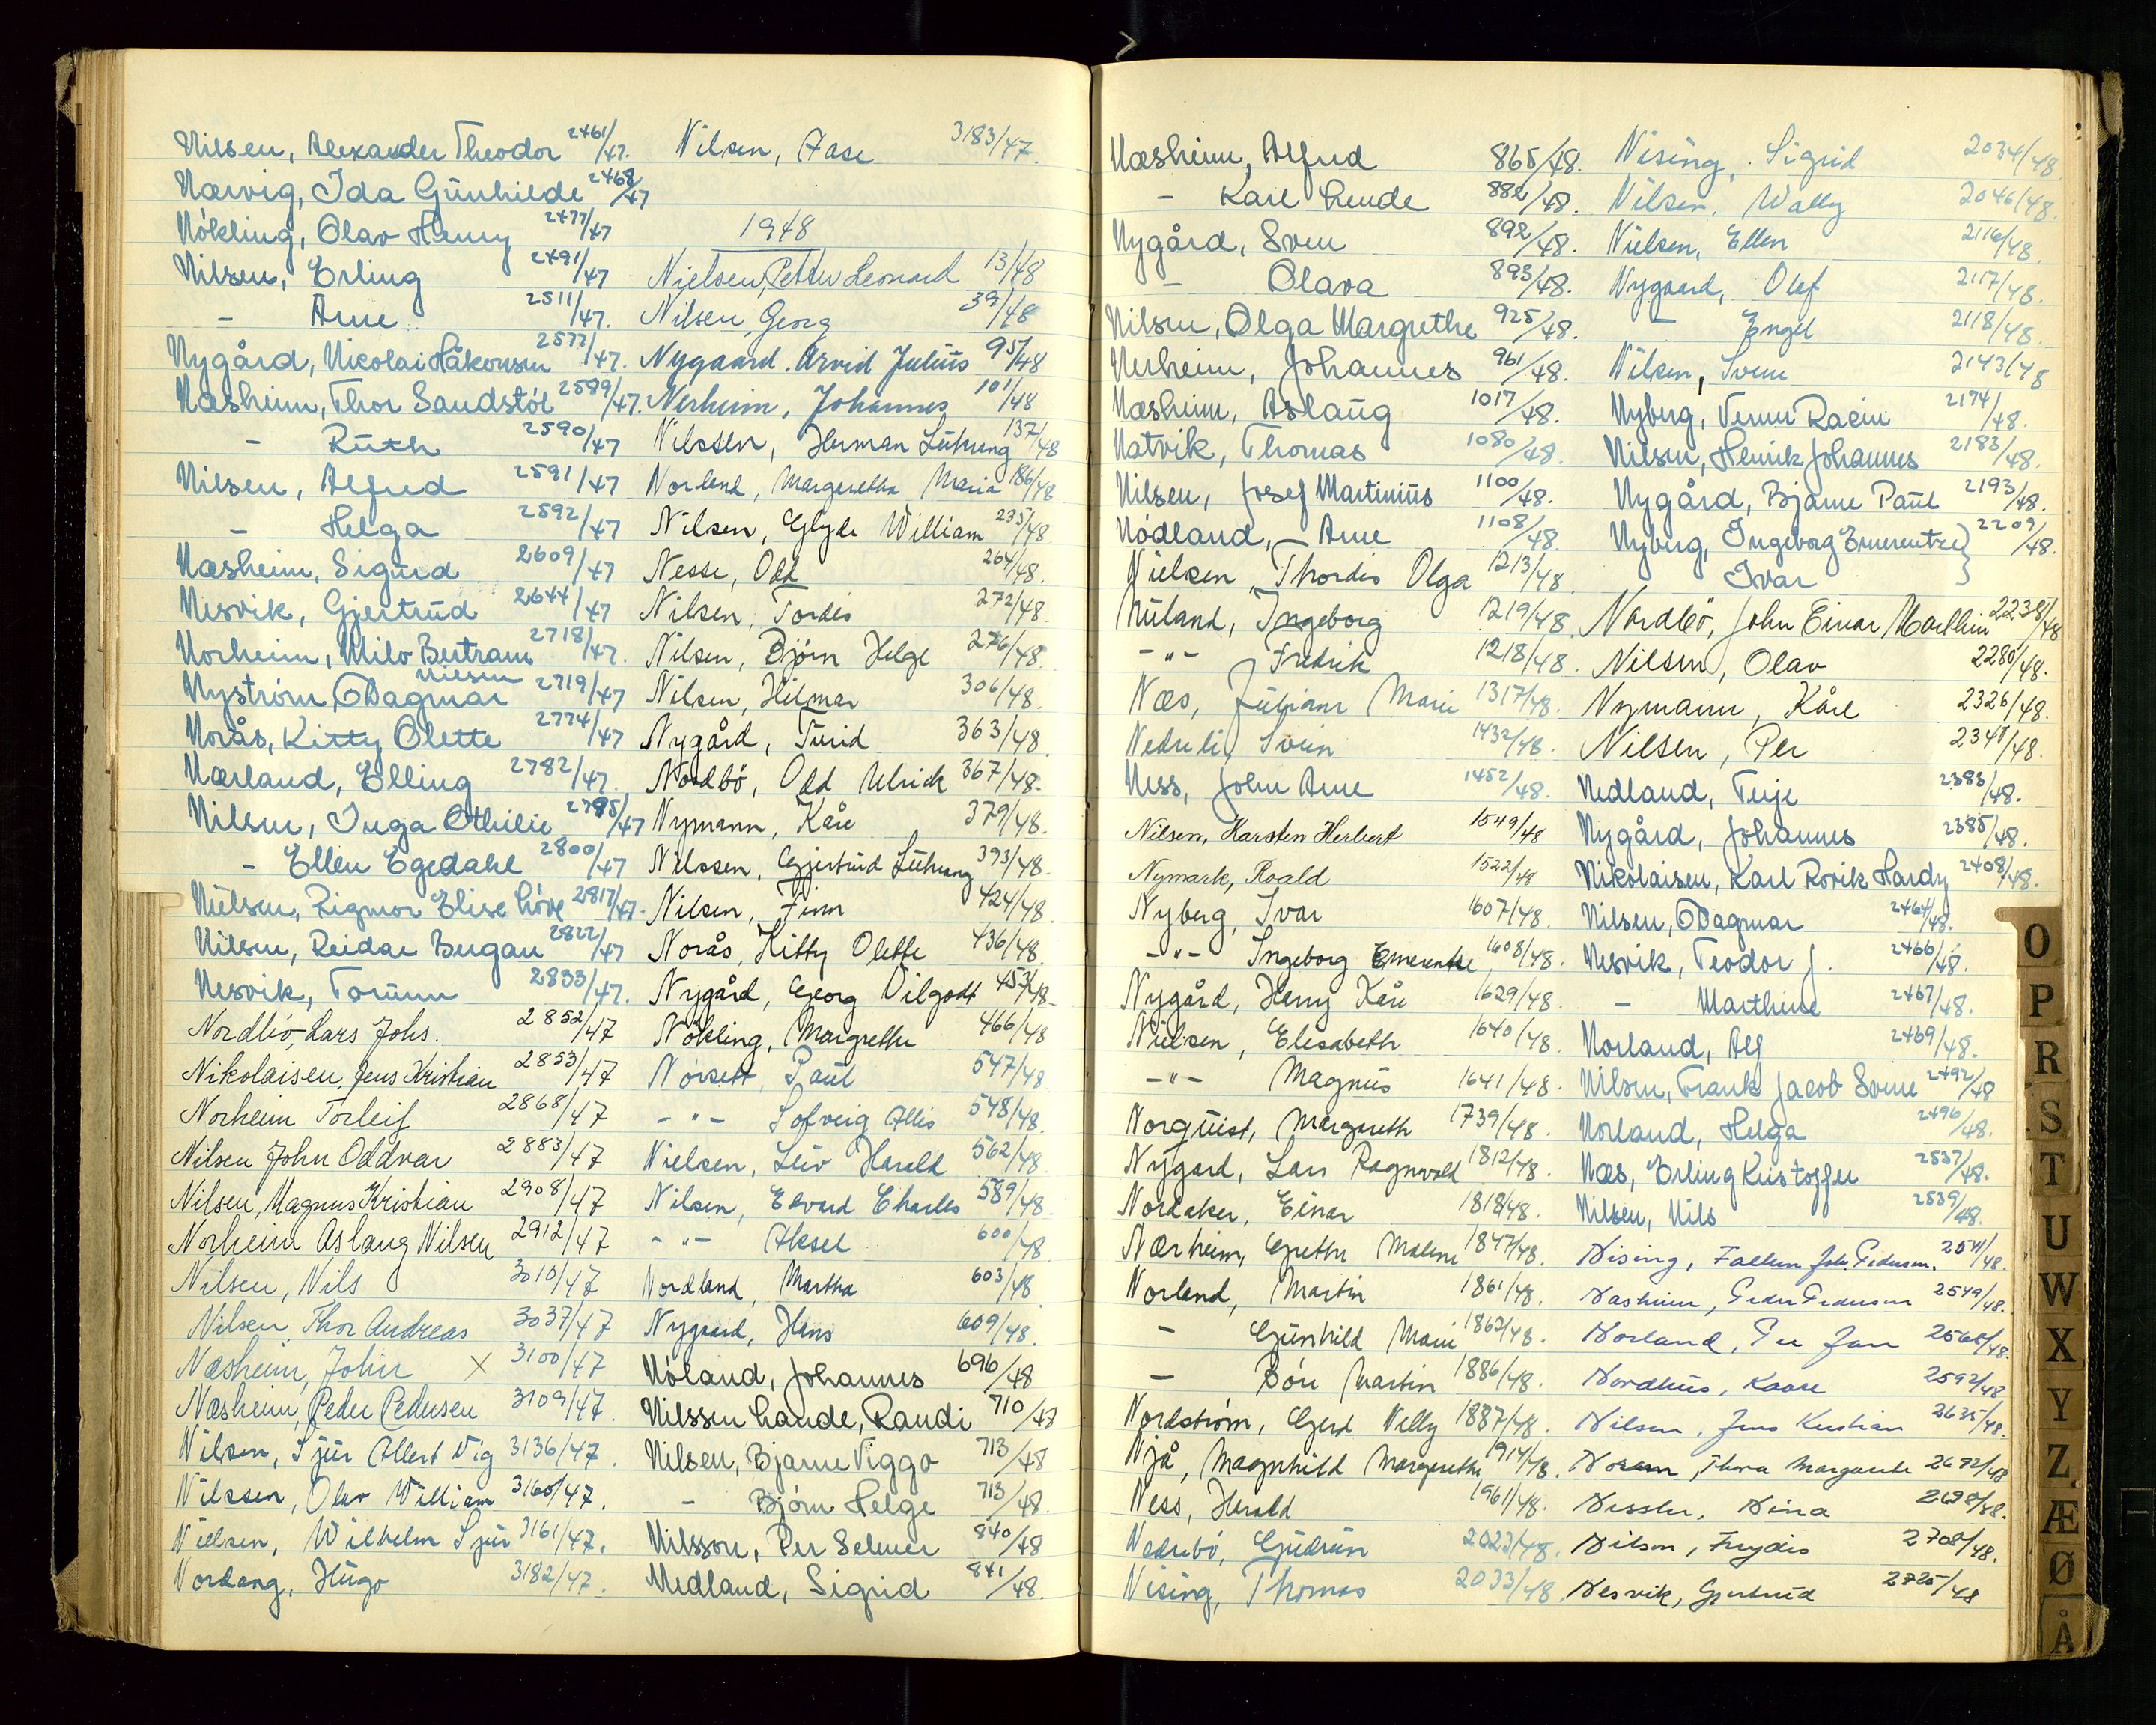 Nilsen, Alexander Theodor 2461/47.
Nærvig, Ida Gunhilde 2468/47
Nökling, Olav Henry 2477/47
Nilsen, Erling 2491/47
- Arne 2511/47.
Nygård, Nicolai Håkonsen 2577/47.
Næsheim, Thor Sandstöl 2589/47.
- Ruth 2590/47
Nilsen, Alfred 2591/47
- Helga 2592/47
Næsheim, Sigurd 2609/47
Nesvik, Gjertrud 2644/47
Norheim, Milo Bertram 2718/47.
Nilsen
Nyström, Dagmar 2719/47
Norås, Kitty Olette 2774/47
Nærland, Elling 2782/47.
Nilsen, Inga Othilie 2795/47
- Ellen Egedahl 2800/47
Nielsen, Rigmor Elise Löve 2817/47.
Nilsen, Reidar Bergan 2822/47
Nesvik, Torunn 2833/47.
Nordbö, Lars Johs. 2852/47
Nikolaisen, Jens Kristian 2853/47
Norheim Torleif 2868/47
Nilsen John Oddvar 2883/47
Nilsen, Magnus Kristian 2908/47
Norheim Aslaug Nilsen 2912/47
Nilsen, Nils 3010/47
Nilsen, Thor Andreas 3037/47
Næsheim, John × 3100/47
Næsheim, Peder Pedersen 3109/47.
Nilsen, Sjur Albert Vig 3136/47.
Nilssen, Olav William 3160/47.
Nielsen, Wilhelm Sjur 3161/47.
Nordang, Hugo 3182/47.
Nilsen, Aase 3183/47.
1948
Nielsen, Petter Leonard 13/48
Nilsen, Georg 39/48
Nygaard. Arvid Julius 95/48
Nerheim, Johannes 101/48
Nilssen, Herman Lührung 137/48
Norland, Margaretha Maria 186/48
Nilsen, Clyde William 235/48
Nesse, Odd 264/48.
Nilsen, Tordis 272/48.
Nilsen, Björn Helge 276/48.
Nilsen, Hilmar 306/48.
Nygård, Turid 363/48.
Nordbö, Odd Ulrick 367/48.
Nymann, Kåre 379/48.
Nilssen, Gjertrud Lührung 393/48.
Nilsen, Finn 424/48.
Norås, Kitty Olette 436/48.
Nygård, Georg Vilgodt 453/48.
Nökling, Margrethe 466/48
Norsett, Paul 547/48
-"- Solveig Allis 548/48.
Nielsen, Leiv Harald 562/48
Nilsen, Edvard Charles 589/48.
-"- Aksel 600/48
Nordland, Martha 603/48
Nygaard, Hans 609/48.
Nöland, Johannes 696/48
Nilssen Lande, Randi 710/48
Nilsen, Bjarne Viggo 713/48
- Björn Helge 713/48.
Nilsson, Per Selmer 840/48
Nedland, Sigrid 841/48.
Næsheim, Alfred 865/48.
- Karl Lende 882/48.
Nygård, Sven 892/48.
- Olava 893/48.
Nilsen, Olga Margrethe 925/48.
Nerheim, Johannes 961/48.
Næsheim, Aslaug 1017/48.
Natvik, Thomas 1080/48.
Nilsen, Josef Martinius 1100/48.
Nödland, Arne 1108/48.
Nielsen, Thordis Olga 1213/48.
Nuland, Ingeborg 1219/48.
-"- Fredrik 1218/48.
Næs, Juliane Marie 1317/48.
Nedreli, Svein 1432/48.
Ness, John Arne 1452/48.
Nilsen, Karsten Herbert 1549/48
Nymark, Roald 1522/48
Nyberg, Ivar 1607/48.
-"- Ingeborg Emerentse 1608/48.
Nygård, Henry Kåre 1629/48.
Nielsen, Elisabeth 1640/48.
-"- Magnus 1641/48.
Norquist, Margareth 1739/48.
Nygard, Lars Ragnvald 1812/48.
Nordaker, Einar 1818/48.
Nærheim, Grethe Malene 1847/48.
Norland, Martin 1861/48.
- Gunhild Marie 1862/48.
- Böre Martin 1886/48.
Nordström, Gerd Nelly 1887/48.
Njå, Magnhild Margrethe 1914/48.
Ness, Harald 1961/48.
Nedrebö, Gudrun 2023/48.
Nising, Thomas 2033/48.
Nising, Sigrid 2034/48.
Nilsen, Wally 2046/48.
Nielsen, Ellen 2116/48.
Nygaard, Olaf 2117/48.
- Engel 2118/48.
Nilsen, Svenn 2143/48
Nyberg, Vernn Racin 2174/48.
Nilsen, Henrik Johannes 2183/48.
Nygård, Bjarne Paul 2193/48.
Nyberg, Ingeborg Emerentze } 2209/48.
Ivar
Nordbö, John Einar Marthin 2238/48
Nilsen, Olav 2280/48.
Nymann, Kåre 2326/48.
Nilsen, Per 2341/48.
Nedland, Terje 2383/48.
Nygård, Johannes 2385/48.
Nikolaisen, Karl Rovik Hardy 2408/48.
Nilsen, Dagmar 2464/48.
Nesvik, Teodor J. 2466/48.
- Marthine 2467/48.
Norland, Alf 2469/48.
Nilsen, Frank Jacob Svene 2492/48
Norland, Helga 2496/48.
Næs, Erling Kristoffer 2537/48.
Nilsen, Nils 2539/48.
Nising, Joh. Pedersen. 2541/48.
Næsheim, Peder Pedersen 2549/48.
Norland, Per Jan 2568/48.
Nordhus, Kaare 2592/48
Nilsen, Jens Kristian 2635/48.
Thora Margarethe 2692/48
Nessler, Nina 2698/48.
Nilsen, Frydis 2708/48.
Nesvik, Gjertrud 2725/48
O
P
R
S
T
U
W
X
Y
Z
Æ
Ø
Å